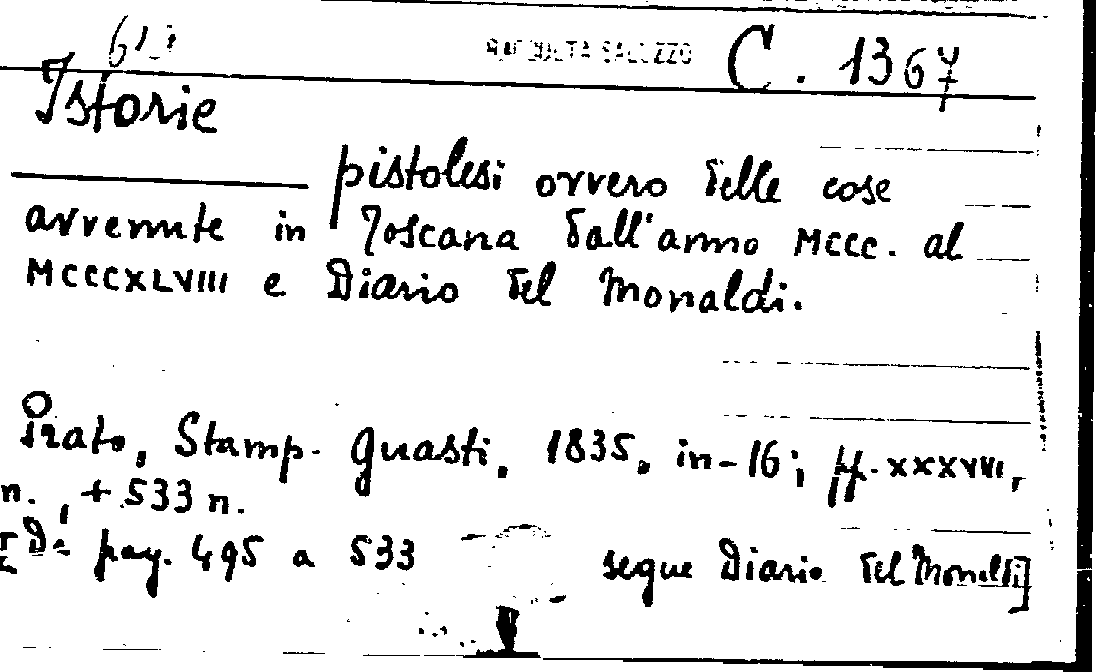 RACCOLTA SALUZZO C. 1367
Istorie
pistolesi ovvero delle cose
avvenute in Toscana dall'anno MCCC. al
MCCCXLVIII e Diario del Monaldi.
Prato, Stamp. Guasti, 1835, in-16; pp. XXXVIII,
n., + 533 n.
Da pag. 495 a 533 segue Diario del Monaldi]